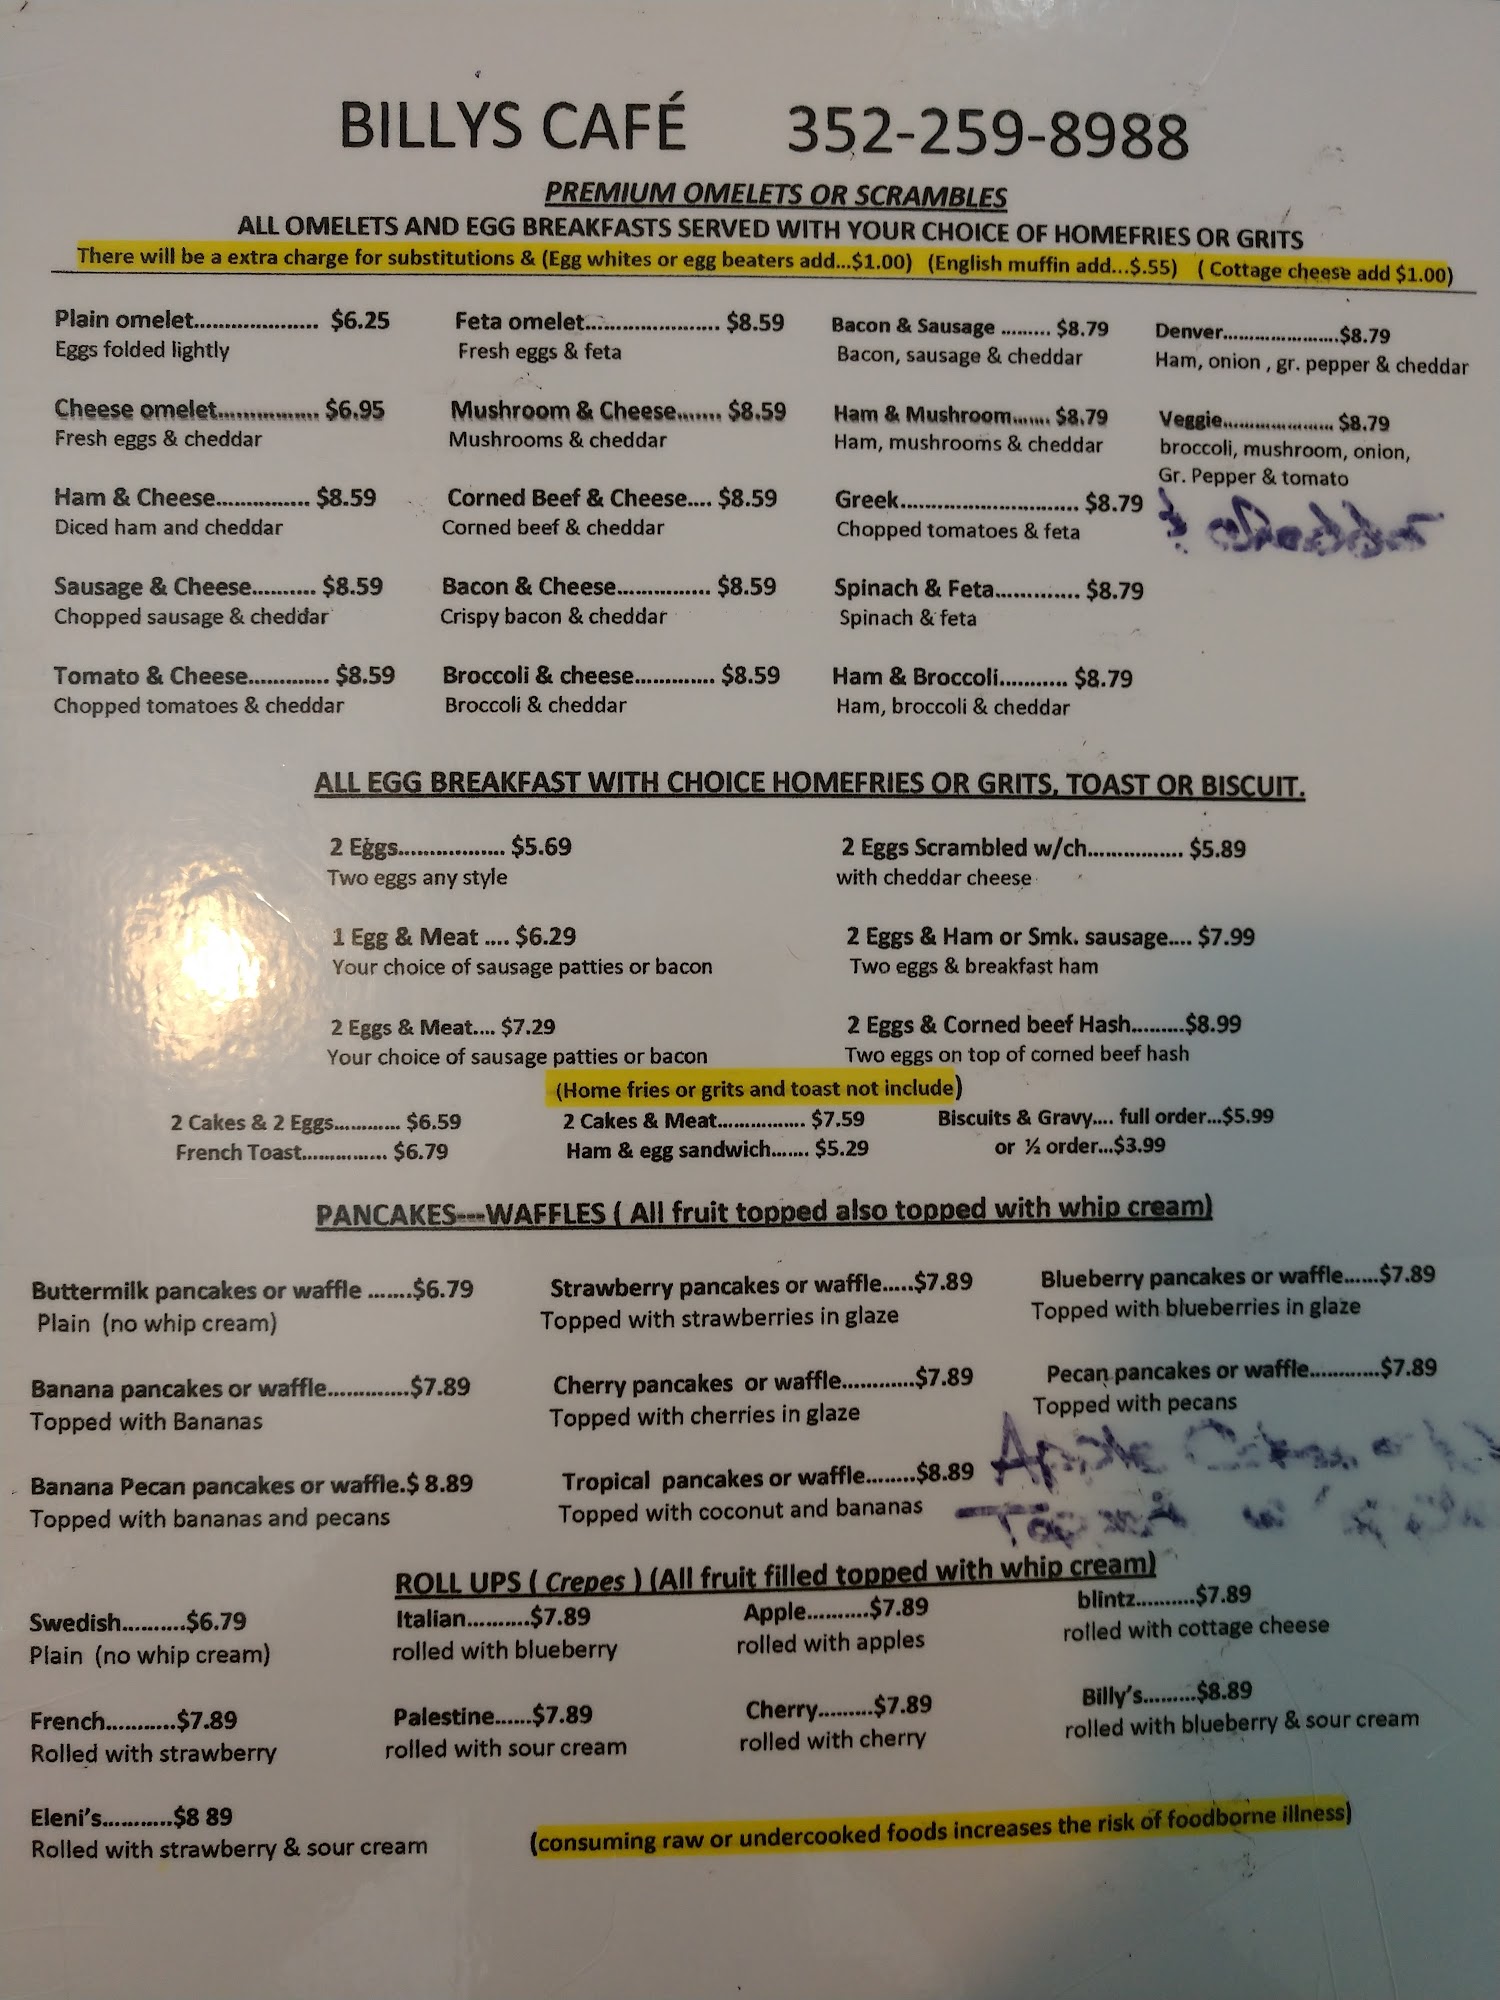 BILLYS CAFÉ 352-259-8988
PREMIUM OMELETS OR SCRAMBLES
ALL OMELETS AND EGG BREAKFASTS SERVED WITH YOUR CHOICE OF HOMEFRIES OR GRITS
There will be a extra charge for substitutions & (Egg whites or egg beaters add...$1.00) (English muffin add...$.55) ( Cottage cheese add $1.00)
Plain omelet.................... $6.25
Eggs folded lightly
Cheese omelet................ $6.95
Fresh eggs & cheddar
Ham & Cheese............... $8.59
Diced ham and cheddar
Sausage & Cheese.......... $8.59
Chopped sausage & cheddar
Tomato & Cheese............. $8.59
Chopped tomatoes & cheddar
Feta omelet...................... $8.59
Fresh eggs & feta
Mushroom & Cheese....... $8.59
Mushrooms & cheddar
Corned Beef & Cheese.... $8.59
Corned beef & cheddar
Bacon & Cheese............... $8.59
Crispy bacon & cheddar
Broccoli & cheese............. $8.59
Broccoli & cheddar
Bacon & Sausage ......... $8.79
Bacon, sausage & cheddar
Ham & Mushroom....... $8.79
Ham, mushrooms & cheddar
Greek............................. $8.79
Chopped tomatoes & feta
Spinach & Feta............. $8.79
Spinach & feta
Ham & Broccoli........... $8.79
Ham, broccoli & cheddar
Denver......................$8.79
Ham, onion , gr. pepper & cheddar
Veggie..................... $8.79
broccoli, mushroom, onion,
Gr. Pepper & tomato
ALL EGG BREAKFAST WITH CHOICE HOMEFRIES OR GRITS, TOAST OR BISCUIT.
2 Eggs.................. $5.69
Two eggs any style
1 Egg & Meat .... $6.29
Your choice of sausage patties or bacon
2 Eggs & Meat.... $7.29
Your choice of sausage patties or bacon
2 Eggs Scrambled w/ch................ $5.89
with cheddar cheese
2 Eggs & Ham or Smk. sausage.... $7.99
Two eggs & breakfast ham
2 Eggs & Corned beef Hash.........$8.99
Two eggs on top of corned beef hash
(Home fries or grits and toast not include)
2 Cakes & 2 Eggs............ $6.59
French Toast............... $6.79
2 Cakes & Meat............... $7.59
Ham & egg sandwich....... $5.29
Biscuits & Gravy.... full order...$5.99
or ½ order...$3.99
PANCAKES---WAFFLES ( All fruit topped also topped with whip cream)
Buttermilk pancakes or waffle .......$6.79
Plain (no whip cream)
Banana pancakes or waffle.............$7.89
Topped with Bananas
Banana Pecan pancakes or waffle.$ 8.89
Topped with bananas and pecans
Strawberry pancakes or waffle.....$7.89
Topped with strawberries in glaze
Cherry pancakes or waffle............$7.89
Topped with cherries in glaze
Tropical pancakes or waffle........$8.89
Topped with coconut and bananas
Blueberry pancakes or waffle......$7.89
Topped with blueberries in glaze
Pecan pancakes or waffle............$7.89
Topped with pecans
ROLL UPS ( Crepes ) (All fruit filled topped with whip cream)
Swedish..........$6.79
Plain (no whip cream)
French...........$7.89
Rolled with strawberry
Eleni's...........$8 89
Rolled with strawberry & sour cream
Italian..........$7.89
rolled with blueberry
Palestine......$7.89
rolled with sour cream
Apple..........$7.89
rolled with apples
Cherry.........$7.89
rolled with cherry
blintz..........$7.89
rolled with cottage cheese
Billy's.........$8.89
rolled with blueberry & sour cream
(consuming raw or undercooked foods increases the risk of foodborne illness)